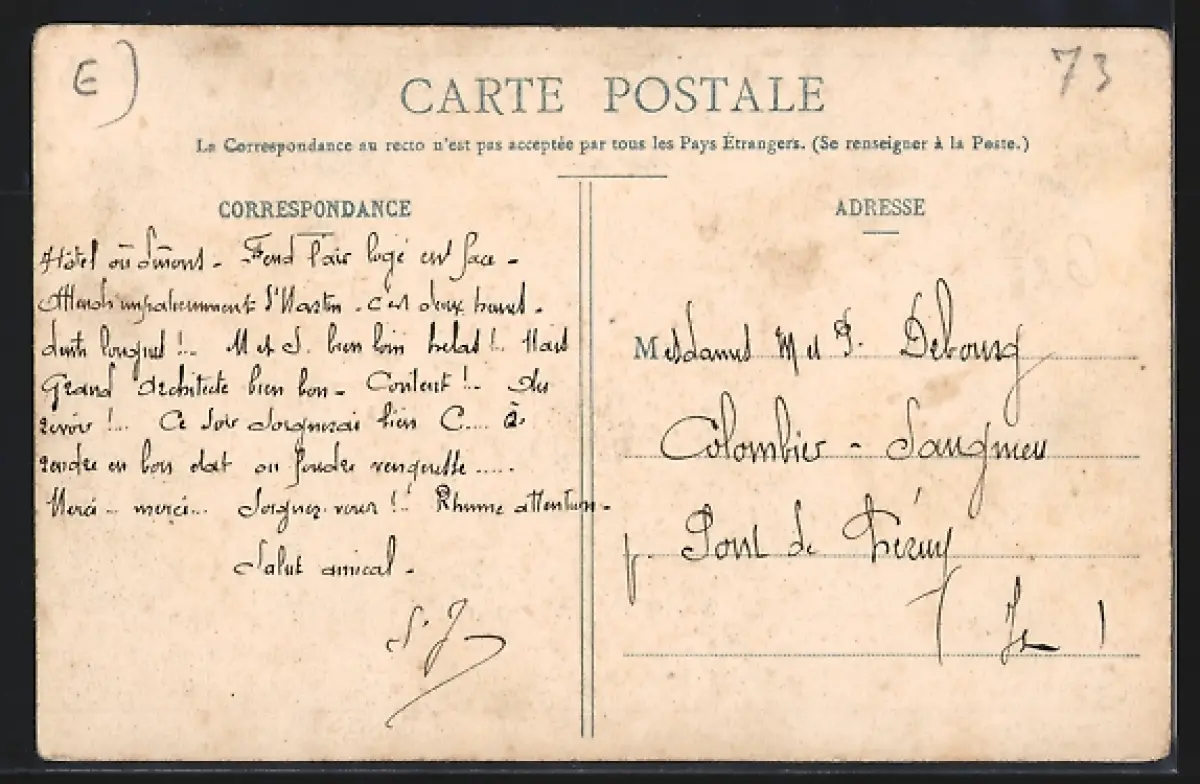 E)
73
CARTE POSTALE
La Correspondance au recto n'est pas acceptée par tous les Pays Étrangers. (Se renseigner à la Poste.)
CORRESPONDANCE
Hôtel où - Fend l'air logé en face -
Attends impatiemment S'Martin - c'est deux
!.. M et J. bien loin helas !.. Mais
Grand Architecte bien bon - Content !.. Au
revoir !... Ce soir soignerai bien C.... à
rendre en bon état ou foudre vengeresse .....
Merci .. merci... Soignez-vous !.. Rhume attention -
Salut amical -
S. J.
ADRESSE
Mesdames M et P. Debourg
Colombier - Saugnieu
p. Pont de Chéruy
(Is )